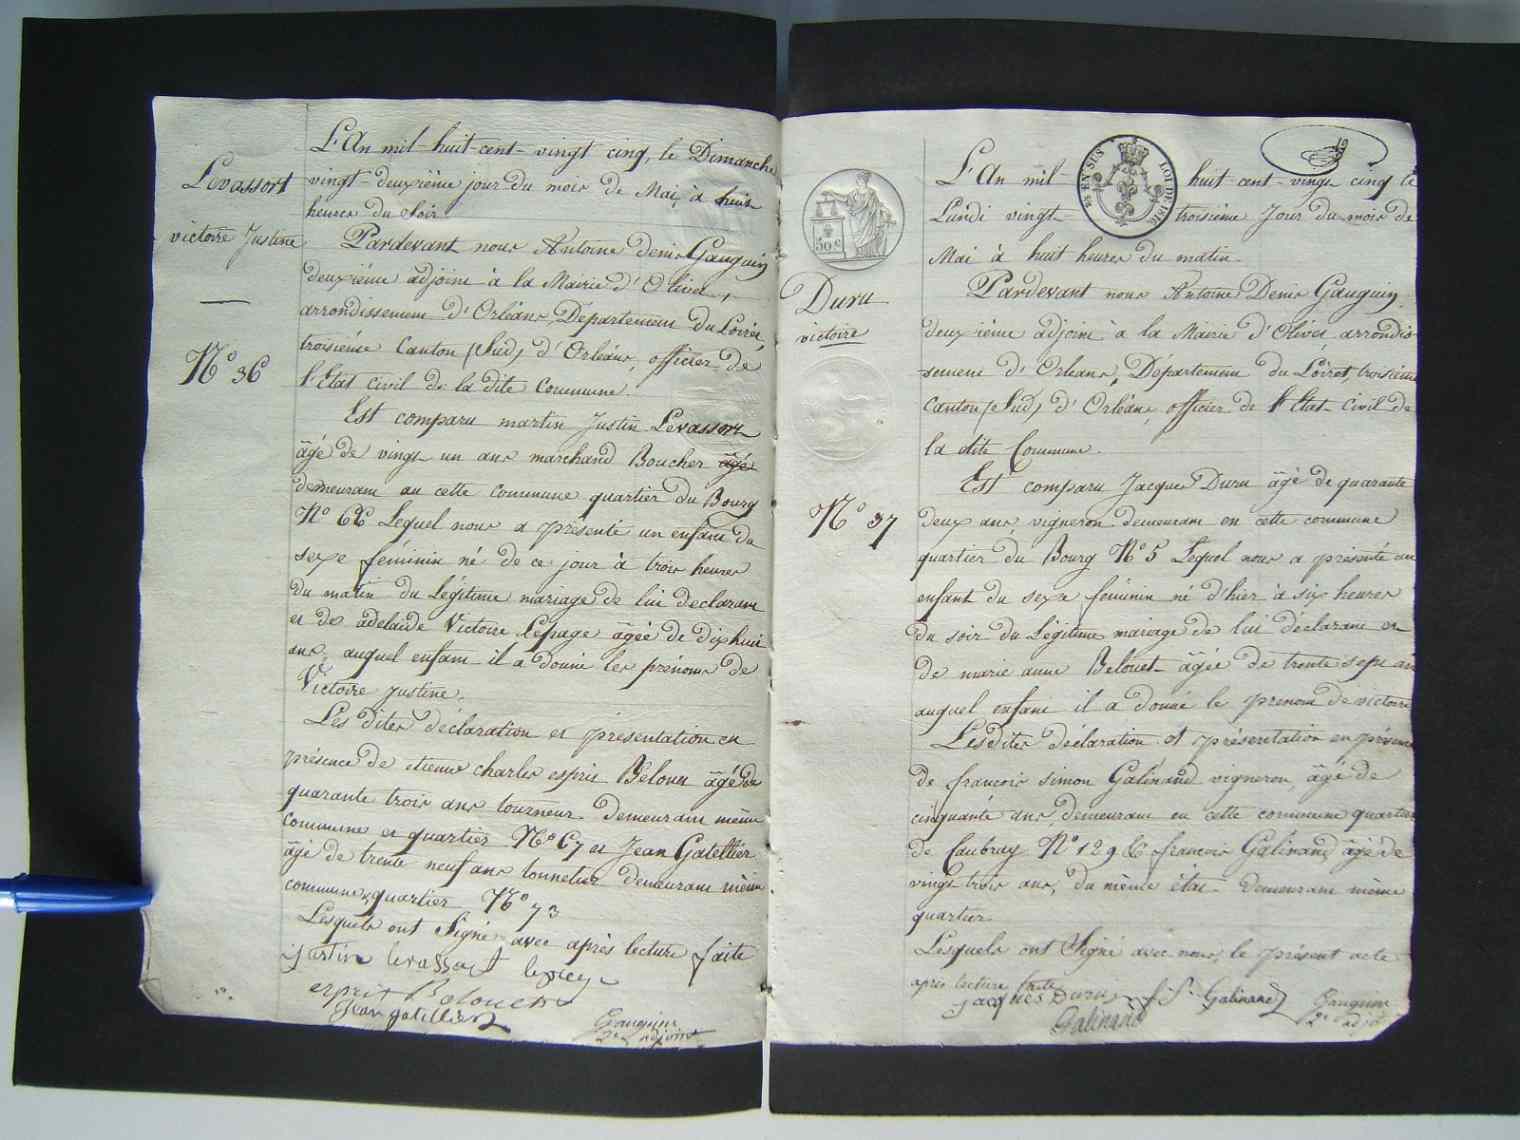 Levassort
victoire Justine
N° 36
L'An mil-huit-cent-vingt cinq, le Dimanche
vingt-deuxième jour du mois de Mai, à huit
heures du Soir
Pardevant nous Antoine denis Gauguin
deuxième adjoint à la Mairie d'Olivet,
arrondissement d'Orléans, Département du Loiret,
troisième Canton (Sud) d'Orléans, officier de
l'Etat civil de la dite Commune.
Est comparu martin Justin Levassort
âgé de vingt un ans marchand Boucher âgé
demeurant au cette commune quartier du Bourg
N° 66 Lequel nous a présenté un enfant du
sexe féminin né de ce jour à trois heures
du matin du Légitime mariage de lui declarant
et de adelaide Victoire Lepage âgée de dix huit
ans, auquel enfant il a donné les prénoms de
Victoire justine.
Les dites déclaration et présentation en
présence de etienne charles esprit Belouet âgé de
quarante trois ans tourneur demeurant même
commune et quartier N° 67 et Jean Gatellier
âgé de trente neuf ans tonnelier demeurant même
commune, quartier N° 73
Lesquels ont Signé avec après lecture faite
justin levassort
esprit Belouet
Jean gatellier
Gauguin
2e adjoint
EN SUS
LOI DE 1816
50 c
Duru
victoire
N° 37
L'An mil- huit-cent-vingt cinq le
Lundi vingt- troisième Jour du mois de
Mai à huit heures du matin.
Pardevant nous Antoine Denis Gauguin
deuxième adjoint à la Mairie d'Olivet, arrondis
sement d'Orléans, Département du Loiret, troisième
Canton (Sud) d'Orléans, officier de l'Etat civil de
la dite Commune.
Est comparu Jacques Duru âgé de quarante
deux ans, vigneron demeurant en cette commune
quartier du Bourg N° 5 Lequel nous a présenté un
enfant du sexe féminin né d'hier à six heures
du soir du Légitime mariage de lui déclarant et
de marie anne Belouet âgée de trente sept ans
auquel enfant il a donné le prenom de victoire
Les dites déclaration et présentation en présence
de francois simon Galinand vigneron, âgé de
cinquante ans, demeurant en cette commune quartier
de Caubray N° 129 & francois Galinand âgé de
vingt trois ans, du même état demeurant même
quartier.
Lesquels ont Signé avec nous, le présent acte
après lecture faite
jacques Duru f. s. Galinand
Galinand
Gauguin
2e adjt